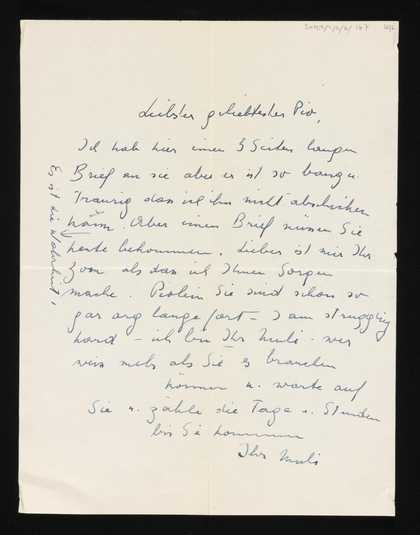 Liebster geliebtester Pio,
Ich hab hier einen 3 Seiten langen
Brief an sie aber er ist so bang u.
traurig dass ich ihn nicht abschicken
kann. Aber einen Brief müssen Sie
heute bekommen. Lieber ist mir Ihr
Zorn als dass ich Ihnen Sorgen
mache. Piolein Sie sind schon so
gar arg lange fort – I am struggling
hard – ich bin Ihr – wer
mehr als Sie es brauchen
können u. warte auf
Sie u. zähle die Tage u. Stunden
bis Sie kommen
Ihr
Es ist die Wahrheit!